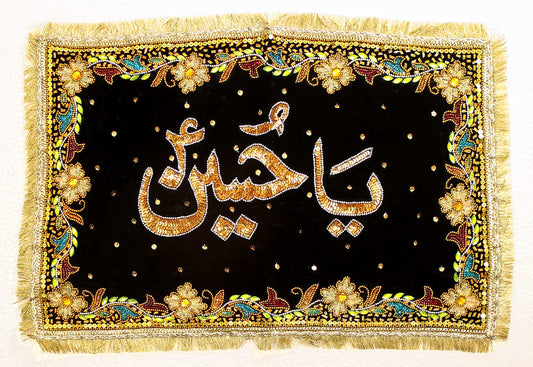 یا حسینؑ